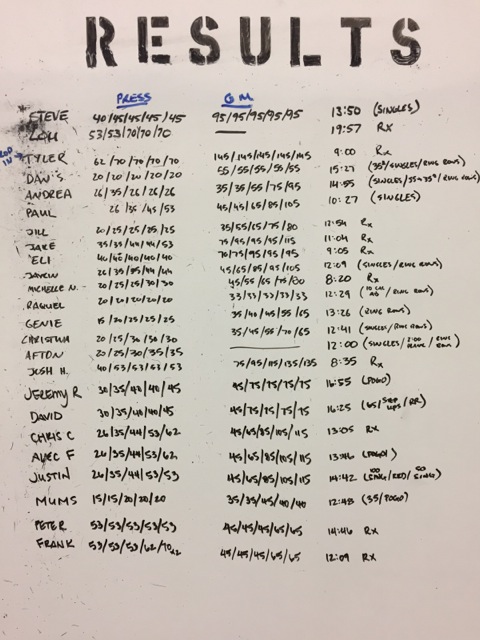 RESULTS
PRESS GM
STEVE 40/45/45/45/45 95/95/95/95/95 13:50 (SINGLES)
53/53/70/70/70 — 19:57 Rx
TYLER 62/70/70/70/70 145/145/145/145/145 9:00 Rx
20/20/20/20/20 55/55/55/55/55 15:27 (35#/SINGLES/RING ROWS)
ANDREA 26/35/26/26/26 35/35/55/75/95 14:55
PAUL 26/35/45/53 45/45/65/85/105 10:27 (SINGLES)
JILL 20/25/25/25/25 35/55/65/75/80 12:54 Rx
JAKE 35/35/44/44/53 75/95/95/95/115 11:04 Rx
ELI 70/75/95/95/95 9:05 Rx
26/35/35/44/44 45/65/85/95/105 12:09 (SINGLES/RING ROWS)
MICHELLE N. 20/25/25/30/30 45/55/65/75/80 8:20 Rx
RAQUEL 20/20/20/20/20 33/33/33/33/33 12:29
GENIE 15/20/25/25/25 35/40/45/55/65 13:26 (RING ROWS)
CHRISTINA 20/25/30/30/30 35/45/55/70/65 12:41 (SINGLES/RING ROWS)
AFTON 20/25/30/35/35 — 12:00
JOSH H. 40/53/53/53/53 75/95/115/135/135 8:35 Rx
JEREMY R 30/35/43/40/45 45/75/75/75/75 16:55 (POGO)
DAVID 30/35/40/40/45 45/75/75/75/75 16:25 (65/STEP UPS/RR)
CHRIS C 26/35/44/53/62 45/65/85/105/115 13:05 Rx
ALEC F 26/35/44/53/62 45/65/85/105/115 13:46 (POGO)
JUSTIN 26/35/44/53/53 45/65/85/105/115 14:42
MUMS 15/15/20/20/20 35/35/45/40/40 12:48 (35/POGO)
PETER 53/53/53/53/53 45/45/45/65/65 14:46 Rx
FRANK 53/53/53/62/70x2 45/45/45/65/65 12:09 Rx